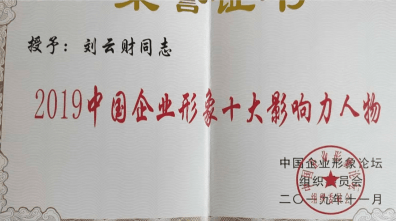 荣誉证书
授予：刘云财同志
2019中国企业形象十大影响力人物
中国企业形象论坛
组织委员会
二〇一九年十一月